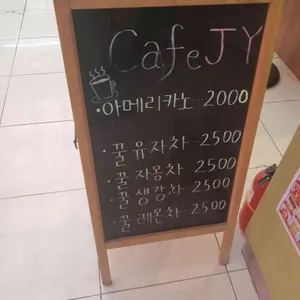 Cafe JY
·아메리카노 2000
·꿀유자차 2500
·꿀자몽차 2500
·꿀생강차 2500
·꿀레몬차 2500